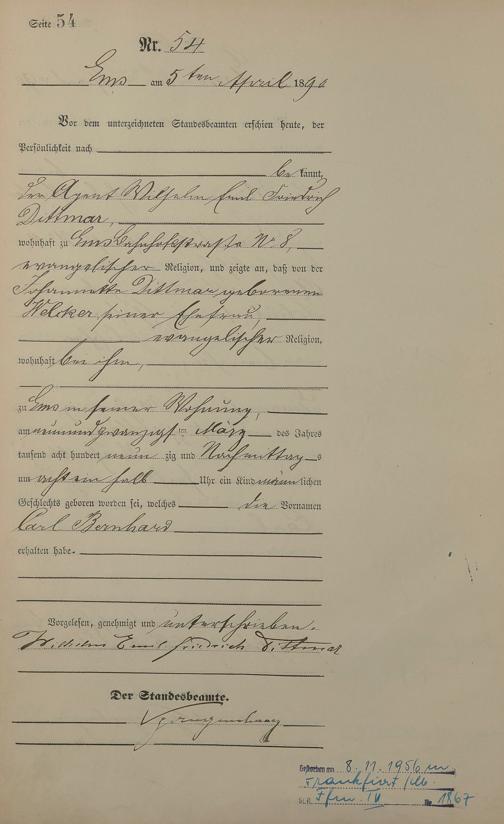 Seite 54
Nr. 54
Ems am 5ten April 1890
Vor dem unterzeichneten Standesbeamten erschien heute, der
Persönlichkeit nach
bekannt,
der Agent Wilhelm Emil Friedrich
Dittmar,
wohnhaft zu Ems Bahnhofsstraße Nr 8,
evangelischer Religion, und zeigte an, daß von der
Johannette Dittmar geborenen
Welcker, seiner Ehefrau,
evangelischer Religion,
wohnhaft bei ihm,
zu Ems in seiner Wohnung,
am neunundzwanzigsten März des Jahres
tausend acht hundert neunzig und Nachmittags
um acht ein halb Uhr ein Kind männlichen
Geschlechts geboren worden sei, welches die Vornamen
Carl Bernhard
erhalten habe.
Vorgelesen, genehmigt und unterschrieben.
Wilhelm Emil Friedrich Dittmar
Der Standesbeamte.
Gestorben am 8.11.1956 in
Frankfurt /M.
Ffm. IV Nr. 1867